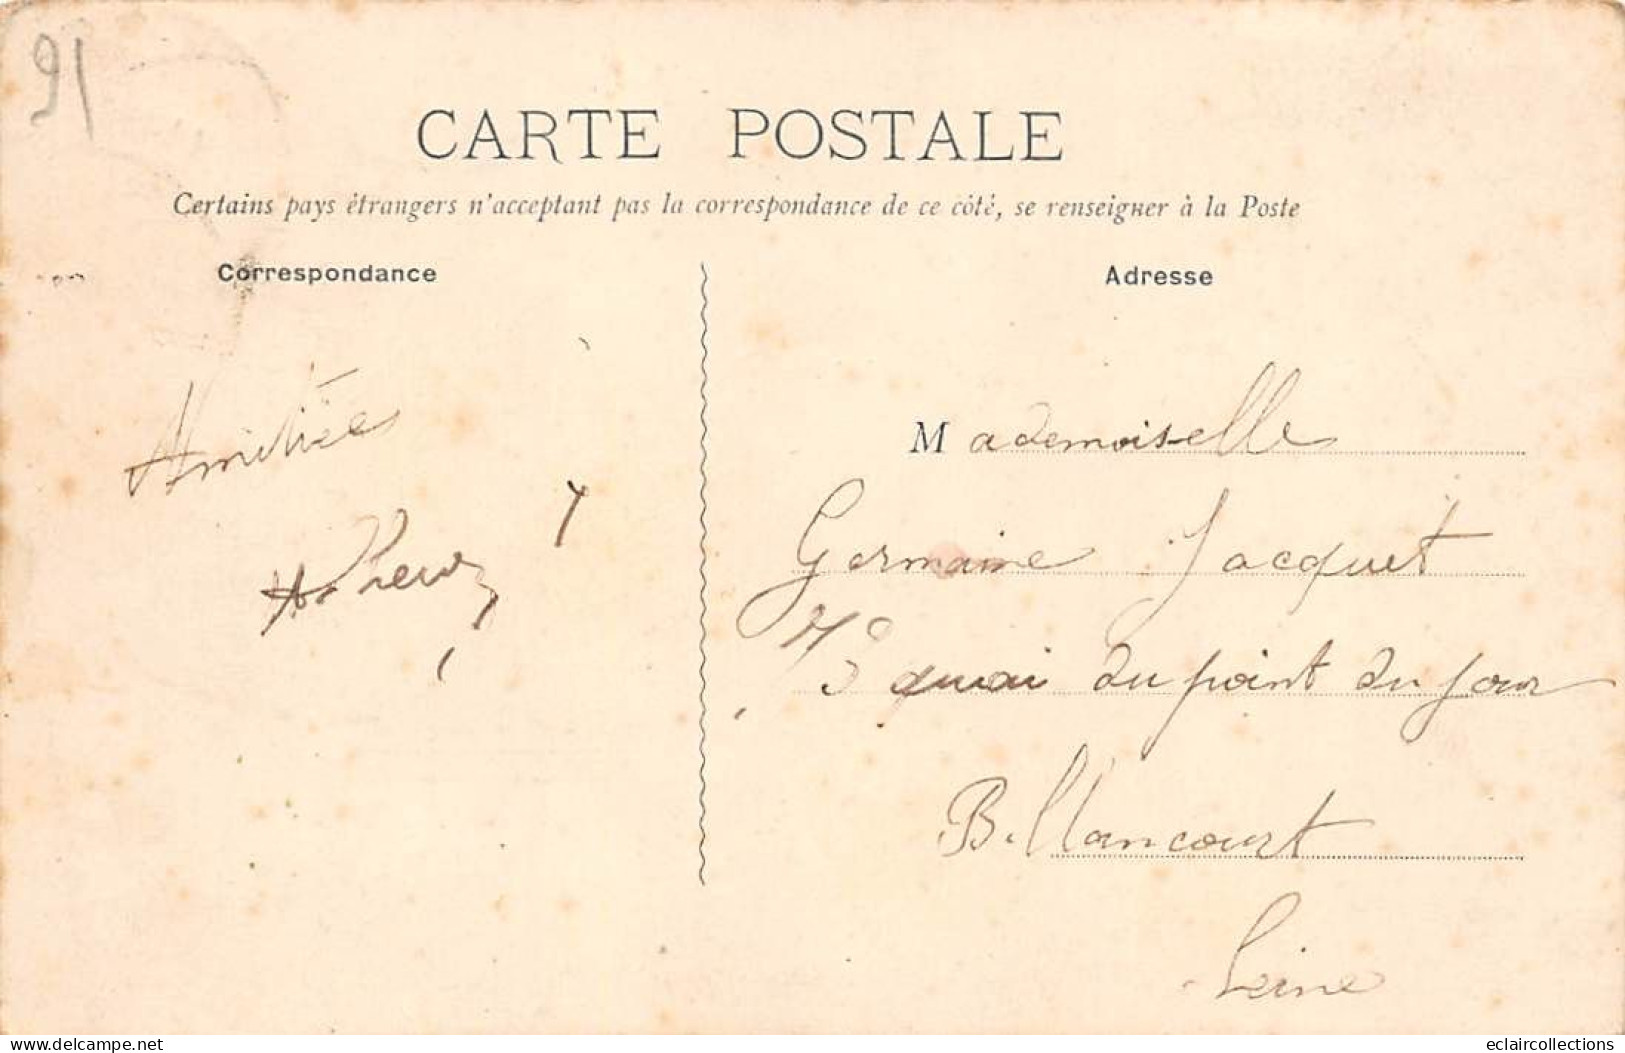 91
CARTE POSTALE
Certains pays étrangers n'acceptant pas la correspondance de ce côté, se renseigner à la Poste
Correspondance
Adresse
Amitiés
Mademoiselle
Germaine Jacquet
quai du point du jour
Billancourt
Seine
delcampe.net
eclaircollections